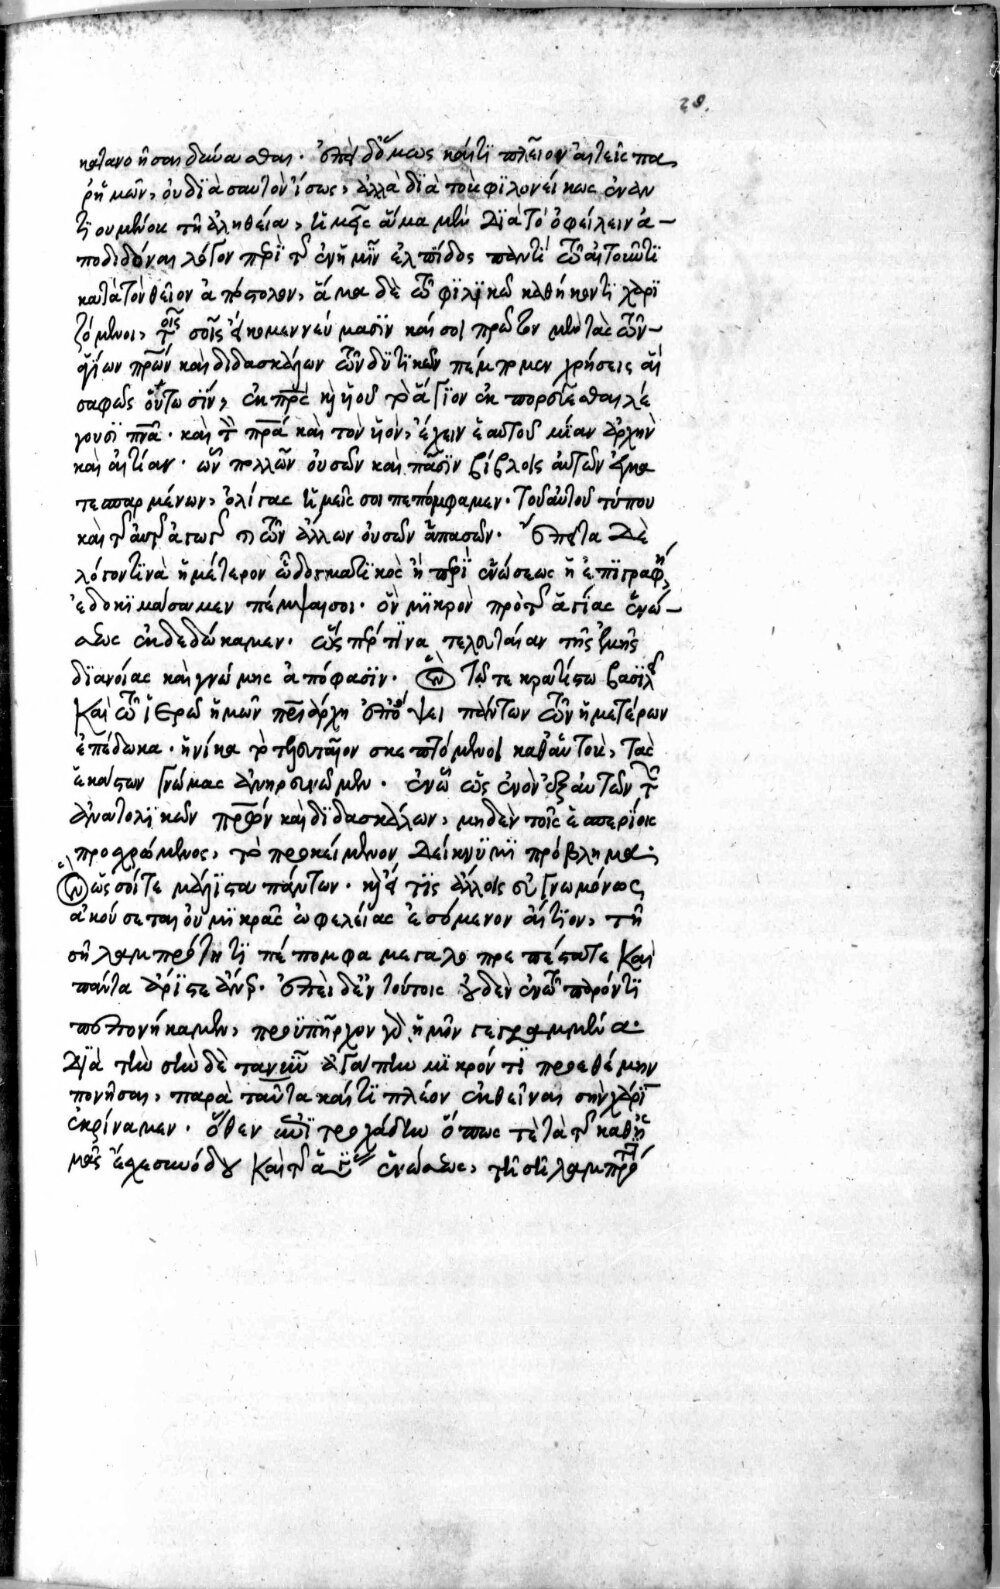 29.
κατανοῆσαι δύνασθαι. ἐπεὶ δ' ὅμως καί τι πλεῖον αἰτεῖς πα
ρ' ἡμῶν, οὐ διὰ σαυτὸν ἴσως, ἀλλὰ διὰ τοὺς φιλονείκως ἐναν
τιουμένους τῇ ἀληθείᾳ, ἡμεῖς ἅμα μὲν διὰ τὸ ὀφείλειν ἀ-
ποδιδόναι λόγον περὶ τῆς ἐν ἡμῖν ἐλπίδος παντὶ τῷ αἰτοῦντι
κατὰ τὸν θεῖον ἀπόστολον, ἅμα δὲ τῷ φιλικῷ καθήκοντι χαρι
ζόμενοι, τοῖς σοῖς εἴκομεν νεύμασιν καί σοι πρῶτον μὲν τὰς τῶν
ἁγίων πρων καὶ διδασκάλων τῶν δυτικῶν πέμπομεν χρήσεις αἳ
σαφῶς οὕτωσὶν, ἐκ πρς κ υἱοῦ τὸ ἅγιον ἐκπορεύεσθαι λέ
γουσι πνα. καὶ τὸν πρα καὶ τὸν υἱὸν, ἔχειν ἑαυτοῦ μίαν ἀρχὴν
καὶ αἰτίαν. ὧν πολλῶν οὐσῶν καὶ πᾶσιν βίβλοις αὐτῶν
τεσπαρμένων, ὀλίγας ἡμεῖς σοι πεπόμφαμεν. τοῦ αὐτοῦ τύπου
καὶ τῶν ἄλλων οὐσῶν ἁπασῶν. ἔπειτα δὲ
λόγον τινὰ ἡμέτερον ᾧ δογματικὸς ἢ περὶ ἑνώσεως ἡ ἐπιγραφὴ,
ἐδοκιμάσαμεν πέμψαι σοι. ὃν μικρὸν πρὸ τῆς ἁγίας ἑνώ-
σεως ἐκδεδώκαμεν. ὥσπερ τινα τελευταίαν τῆς ἐμῆς
διανοίας καὶ γνώμης ἀπόφασιν. ὃν τῷ τε κρατίστῳ βασιλεῖ
καὶ τῷ ἱερῷ ἡμῶν πριάρχῃ ὑπ' ὄψει πάντων τῶν ἡμετέρων
ἐπέδωκα. ἡνίκα τὸ τελευταῖον σκεπτόμενοι καθ' αὑτοὺς, τὰς
ἑκάστων γνώμας ἀνηρευνῶμεν. ἐν ᾧ ὡς ἐνὸν ἐξ αὐτῶν τῶν
ἀνατολικῶν πρων καὶ διδασκάλων, μηδὲν τοῖς ἑσπερίοις
προχρώμενος, τὸ προκείμενον δείκνυμι πρόβλημα.
ὃν ὡς σοί τε μάλιστα πάντων. κ εἴ τις ἄλλος εὐγνωμόνως
ἀκούσεται οὐ μικρᾶς ὠφελείας ἐσόμενον αἴτιον, τῇ
σῇ λαμπρότητι πέπομφα μεγαλοπρεπέστατε καὶ
πάντα ἄριστε ἄνερ. ἐπεὶ δ' ἐν τούτοις οὐδὲν ἐν τῷ παρόντι
πεπονήκαμεν, προϋπῆρχον γὰρ ἡμῖν γεγραμμένα.
διὰ τὴν σὴν δὲ ταύτην ἀγάπην μικρόν τι προεθέμην
πονῆσαι, παρὰ ταῦτα καί τι πλέον ἐκθεῖναι σὴν χάριν
ἐκρίναμεν. ὅθεν τροχάδην ὅπως τε τὰ τῆς καθ' ἡ
μᾶς ἔσχε συνόδου καὶ τῆς ἁγίας ἑνώσεως, τῇ σῇ λαμπρότητι